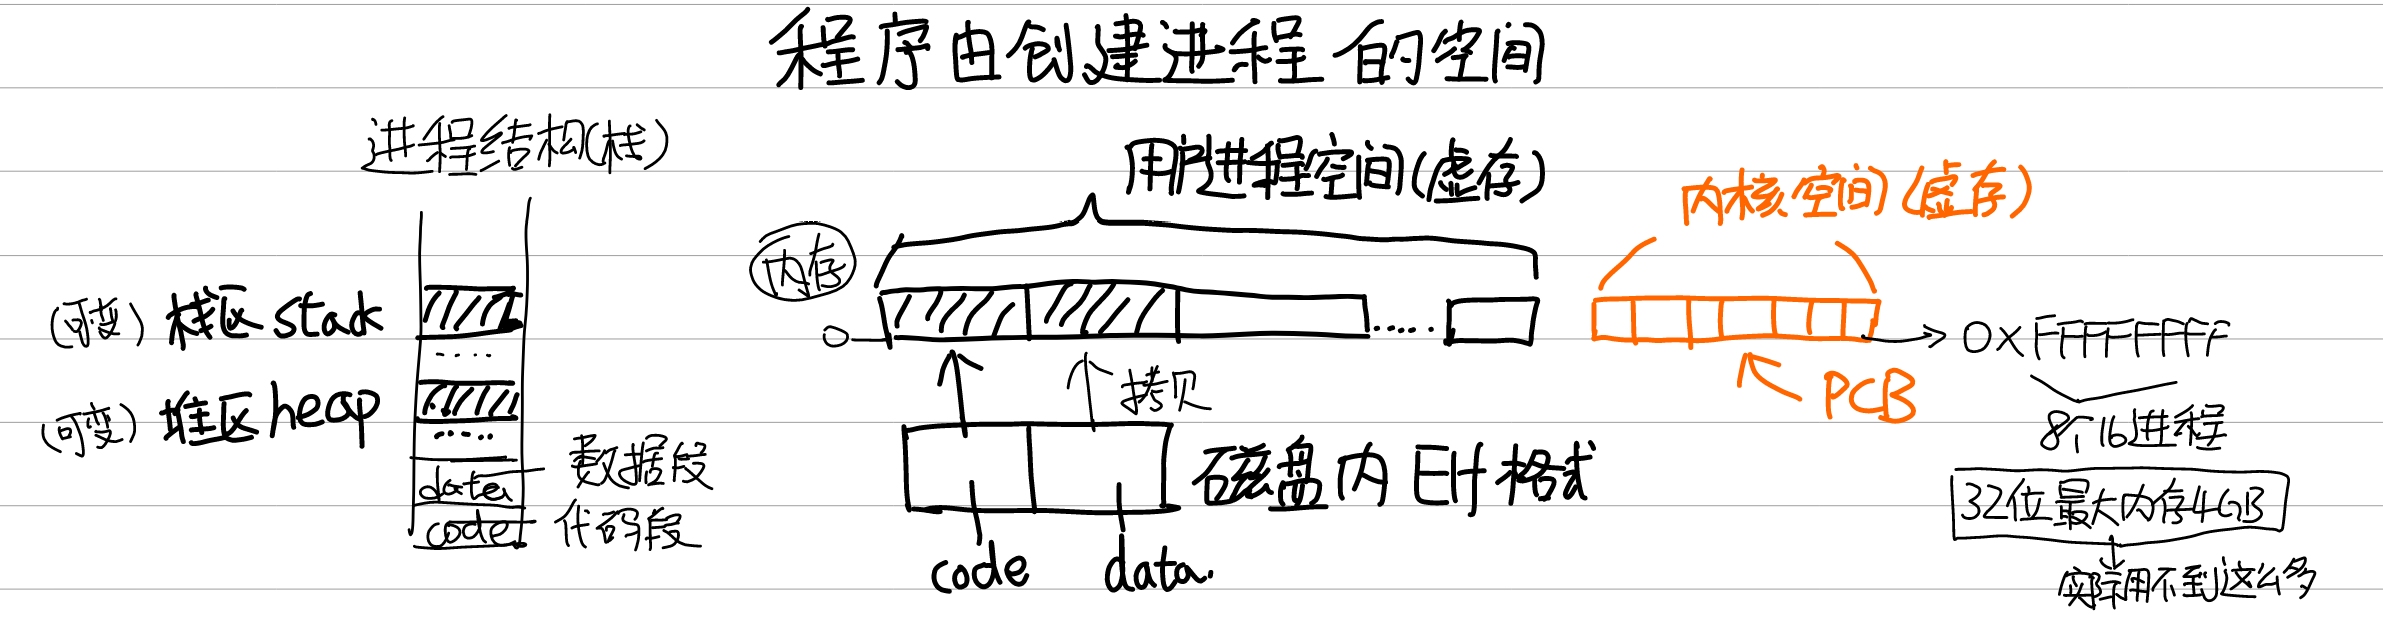 程序由创建进程的空间
进程结构(栈)
(可变) 栈区 stack
....
(可变) 堆区 heap
....
data 数据段
code 代码段
用户进程空间(虚存)
内存
0
.....
拷贝
磁盘内 Elf 格式
code data.
内核空间(虚存)
PCB
0XFFFFFFFF
8个16进程
32位最大内存4GB
实际用不到这么多